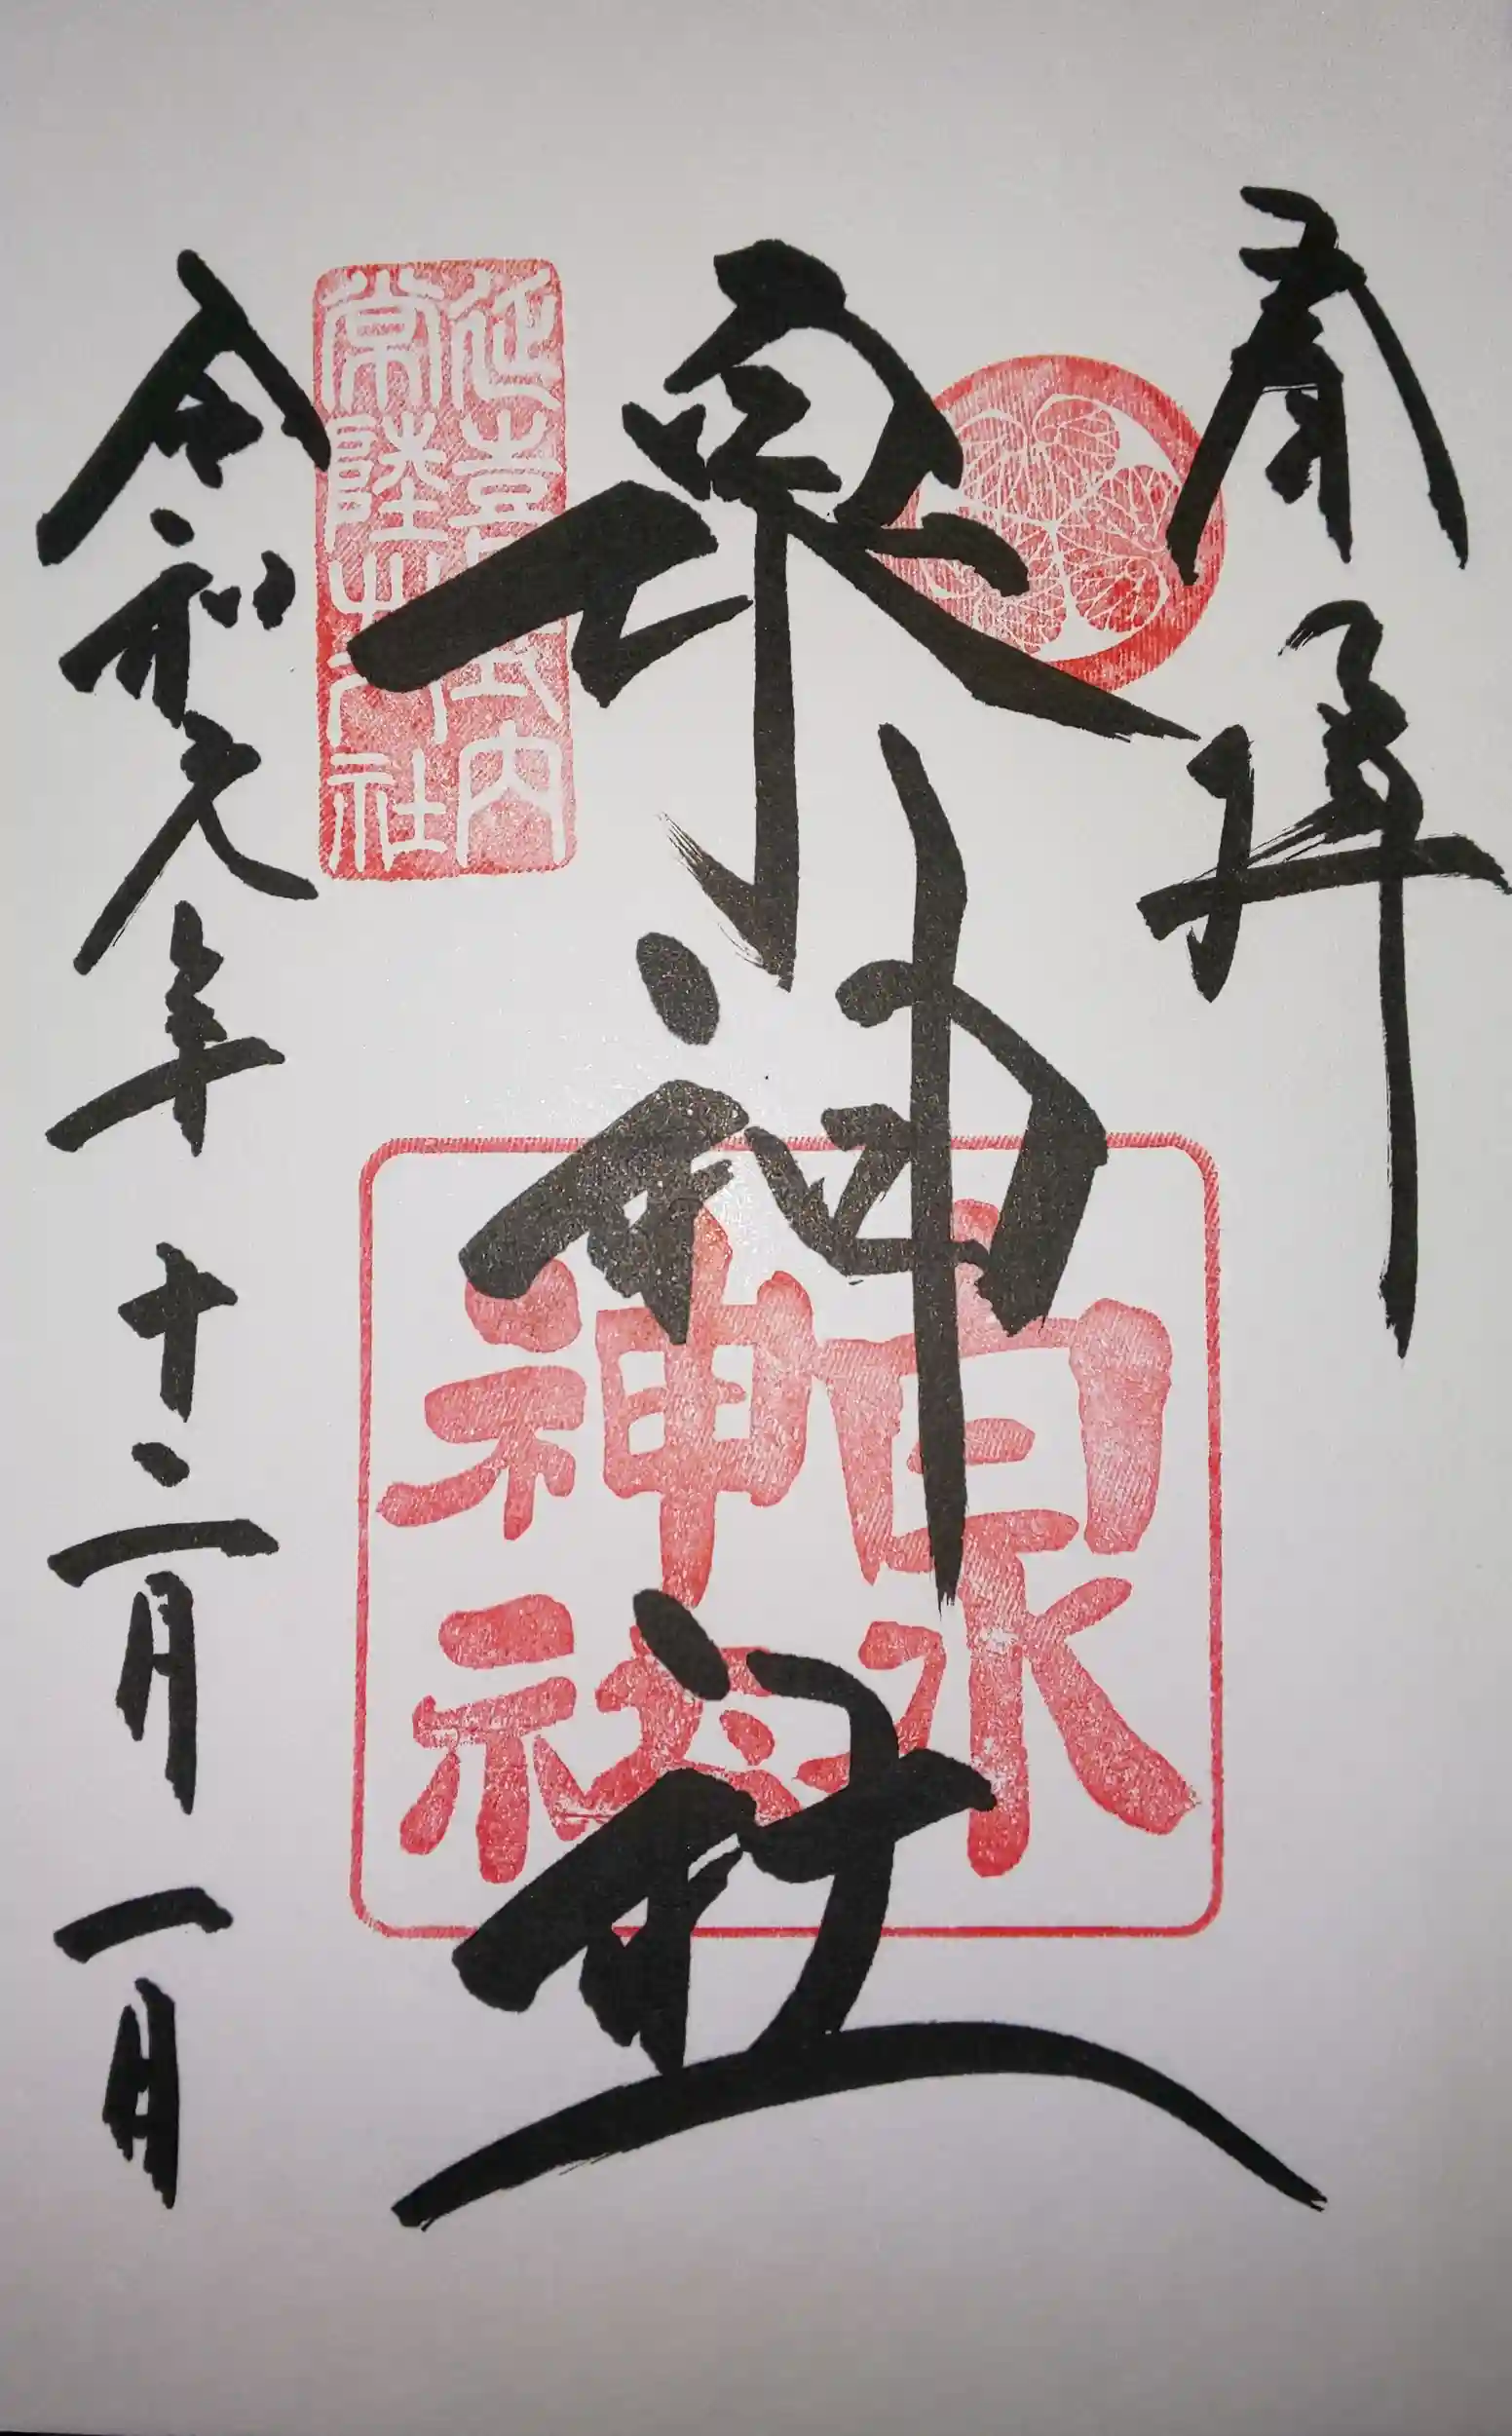 奉拝
泉神社
令和元年十二月一日
延喜式内
常陸廿八社
泉
神社